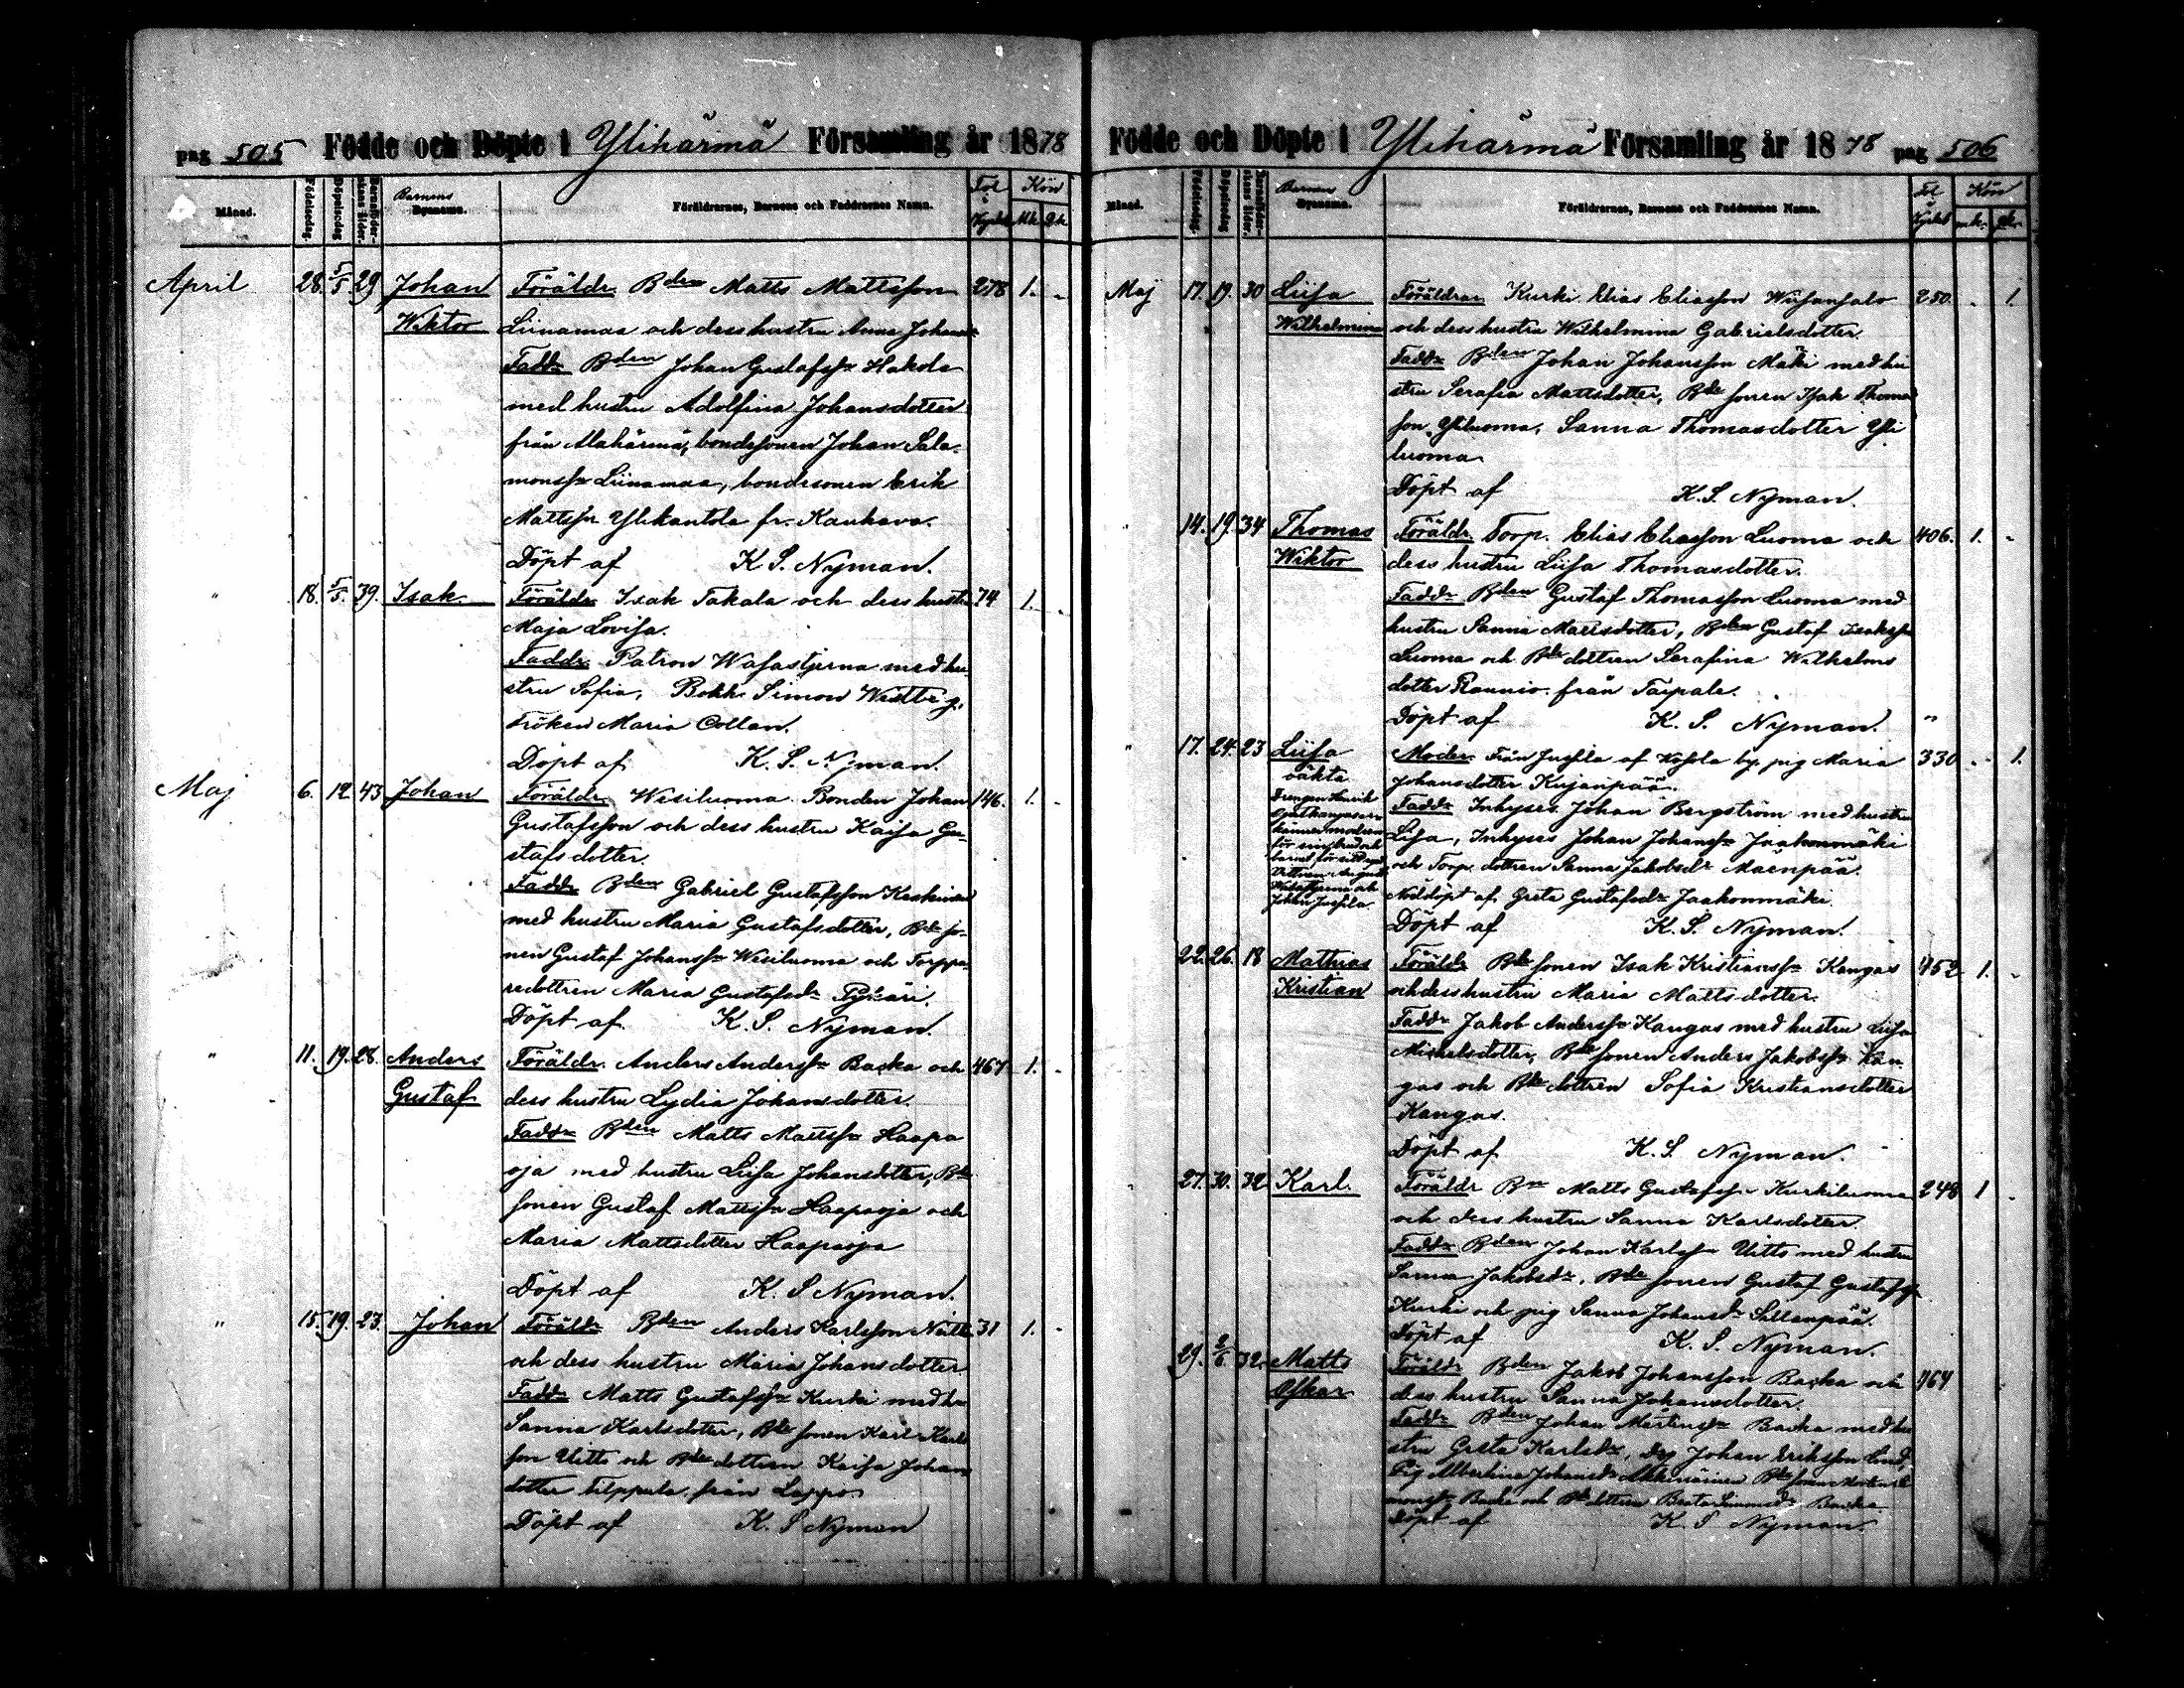 pag 505 Födde och Döpte i Ylihärmä Församling år 1878
Månad. Födelsedag. Döpelsedag Barnaföderskans ålder. Barnens Dynamn. Föräldrarnes, Barnens och Faddrarnes Namn. Fol i Kyrkb Kön Mk. Qk.
April 28. 5/5 29 Johan Föräldr Bden Matts Mattsson 278 1. -
Wiktor Liinamaa och dess hustru Anna Johansd
Faddr Bden Johan Gustafssn Hakola
med hustru Adolfina Johansdotter
från Alahärmä, bondesonen Johan Salo-
monssn Liinamaa, bondesonen Erik
Mattssn Ylikantola fr. Kauhava.
Döpt af K. S. Nyman.
" 18. 5/5. 39. Isak Föräldr Isak Takala och dess hustru 74 1. -
Maja Lovisa.
Faddr Patron Wasastjerna med hu-
stru Sofia, Bokh. Simon Westberg,
Fröken Maria Collan.
Döpt af K. S. Nyman.
Maj 6. 12 43 Johan Föräldr Wesiluoma Bonden Johan 146. 1. -
Gustafsson och dess hustru Kaisa Gu-
stafsdotter.
Faddr Bden Gabriel Gustafsson Keskinen
med hustru Maria Gustafsdotter, Bde so-
nen Gustaf Johanssn Wesiluoma och Torppa-
redottren Maria Gustafsdr
Döpt af K. S. Nyman.
" 11. 19. 28. Anders Föräldr. Anders Anderssn Backa och 467 1. -
Gustaf dess hustru Lydia Johansdotter.
Faddr Bden Matts Mattssn Haapa
oja med hustru Liisa Johansdotter, Bde
sonen Gustaf Mattssn Haapaoja och
Maria Mattsdotter Haapaoja
Döpt af K. S Nyman.
" 15. 19. 23. Johan Föräldr Bden Anders Karlsson 31 1. -
och dess hustru Maria Johansdotter
Faddr Matts Gustafssn Kurki med h
Sanna Karlsdotter, Bde sonen Karl Karls
son Uitto och Bde dottren Kaisa Johans
dotter Filppula från Lappo.
Döpt af K. S Nyman
Födde och Döpte i Ylihärmä Församling år 1878 pag 506
Månad. Födelsedag. Döpelsedag Barnaföderskans ålder. Barnens Dynamn. Föräldrarnes, Barnens och Faddrarnes Namn. Fol i Kyrkb Kön mk. qk.
Maj 17. 19. 30 Liisa Föräldrar Kurki Elias Eliasson 250. - 1.
Wilhelmina och dess hustru Wilhelmina Gabrielsdotter
Faddr Bden Johan Johansson Mäki med hu
stru Serafia Mattsdotter, Bde sonen Isak Thomas
son Yliluoma, Sanna Thomasdotter Yli
luoma
Döpt af K. S. Nyman.
14. 19. 34 Thomas Föräldr. Torp. Elias Eliasson Luoma och 406. 1. -
Wiktor dess hustru Liisa Thomasdotter.
Faddr Bden Gustaf Thomasson Luoma med
hustru Sanna Mattsdotter, Bden Gustaf Isakssn
Luoma och Bde dottren Serafina Wilhelms
dotter Raunio från Taipale.
Döpt af K. S. Nyman. "
" 17. 24. 23 Liisa Moder från Jussila af by. pig Maria 330 - 1.
oäkta Johansdotter Kujanpää.
Drengen Henrik Faddr Inhyses Johan Bergström med hustru
känner modren Lisa, Inhyses Johan Johanssn Jaakonmäki
för sin brud och och Torp. dottren Sanna Jakobsdr Mäenpää.
barnet för sitt eget
Nöddöpt af Greta Gustafsdr Jaakonmäki.
Johan Jussila. Döpt af K. S. Nyman.
22. 26. 18 Mathias Föräldr Bde sonen Isak Kristianssn Kangas 452 1. -
Kristian och dess hustru Maria Mattsdotter.
Faddr Jakob Anderssn Kangas med hustru Liisa
Michelsdotter, Bde sonen Anders Jakobssn Kan-
gas och Bde dottren Sofia Kristiansdotter
Kangas.
Döpt af K. S. Nyman.
27. 30. 32 Karl. Föräldr Bn Matts Gustafssn Kurkiluoma 248 1 -
och dess hustru Sanna Karlsdotter
Faddr Bden Johan Karlssn Uitto med hustru
Sanna Jakobsdr, Bde sonen Gustaf Gustafssn
Kurki och pig Sanna Johansdr Sillanpää.
Döpt af K. S. Nyman.
29. 2/6 32. Matts Föräldr Bden Jakob Johansson Backa och 464
Oskar dess hustru Sanna Johansdotter.
Faddr Bden Johan Mårtenssn Backa med hu
stru Greta Karlsdr, Drg Johan Eriksson Lind,
Pig Albertina Johansdr Bde sonen
Backa och Bde dottren Beata Simonsdr Backa
Döpt af K. S Nyman.